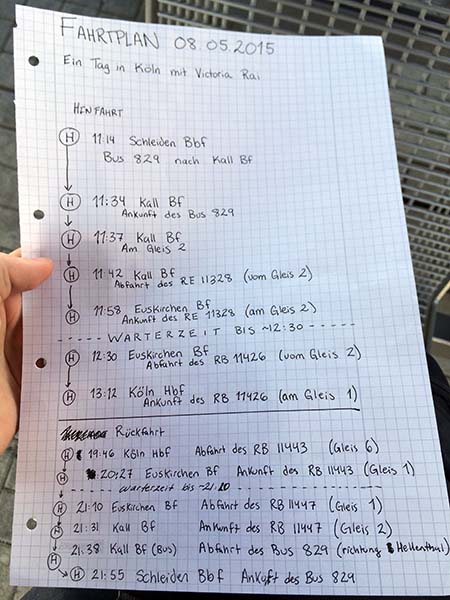 FAHRTPLAN 08.05.2015
Ein Tag in Köln mit Victoria Rai
HENFAHRT
H 11:14 Schleiden Bbf
Bus 829 nach Kall Bf
H 11:34 Kall Bf
Ankunft des Bus 829
H 11:37 Kall Bf
Am Gleis 2
H 11:42 Kall Bf
Abfahrt des RE 11328 (vom Gleis 2)
H 11:58 Euskirchen Bf
Ankunft des RE 11328 (am Gleis 2)
WARTERZEIT BIS ~12:30
H 12:30 Euskirchen Bf
Abfahrt des RB 11426 (vom Gleis 2)
H 13:12 Köln Hbf
Ankunft des RB 11426 (am Gleis 1)
Rückfahrt
H 19:46 Köln Hbf Abfahrt des RB 11443 (Gleis 6)
H 20:27 Euskirchen Bf Ankunft des RB 11443 (Gleis 1)
Warterzeit bis ~21:10
H 21:10 Euskirchen Bf Abfahrt des RB 11447 (Gleis 1)
H 21:31 Kall Bf Ankunft des RB 11447 (Gleis 2)
H 21:38 Kall Bf (Bus) Abfahrt des Bus 829 (richtung Hellenthal)
H H 21:55 Schleiden Bbf Ankuft des Bus 829